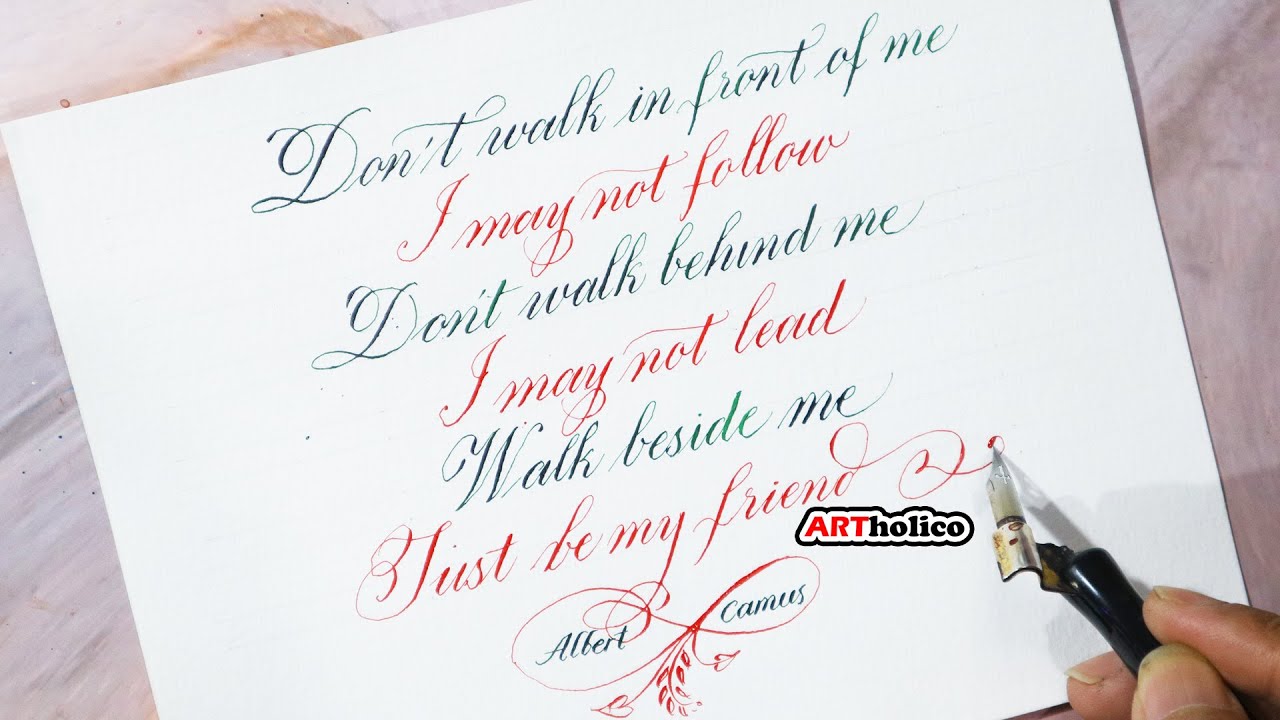 Don't walk in front of me
I may not follow
Don't walk behind me
I may not lead
Walk beside me
Just be my friend
ARTholico
Albert Camus